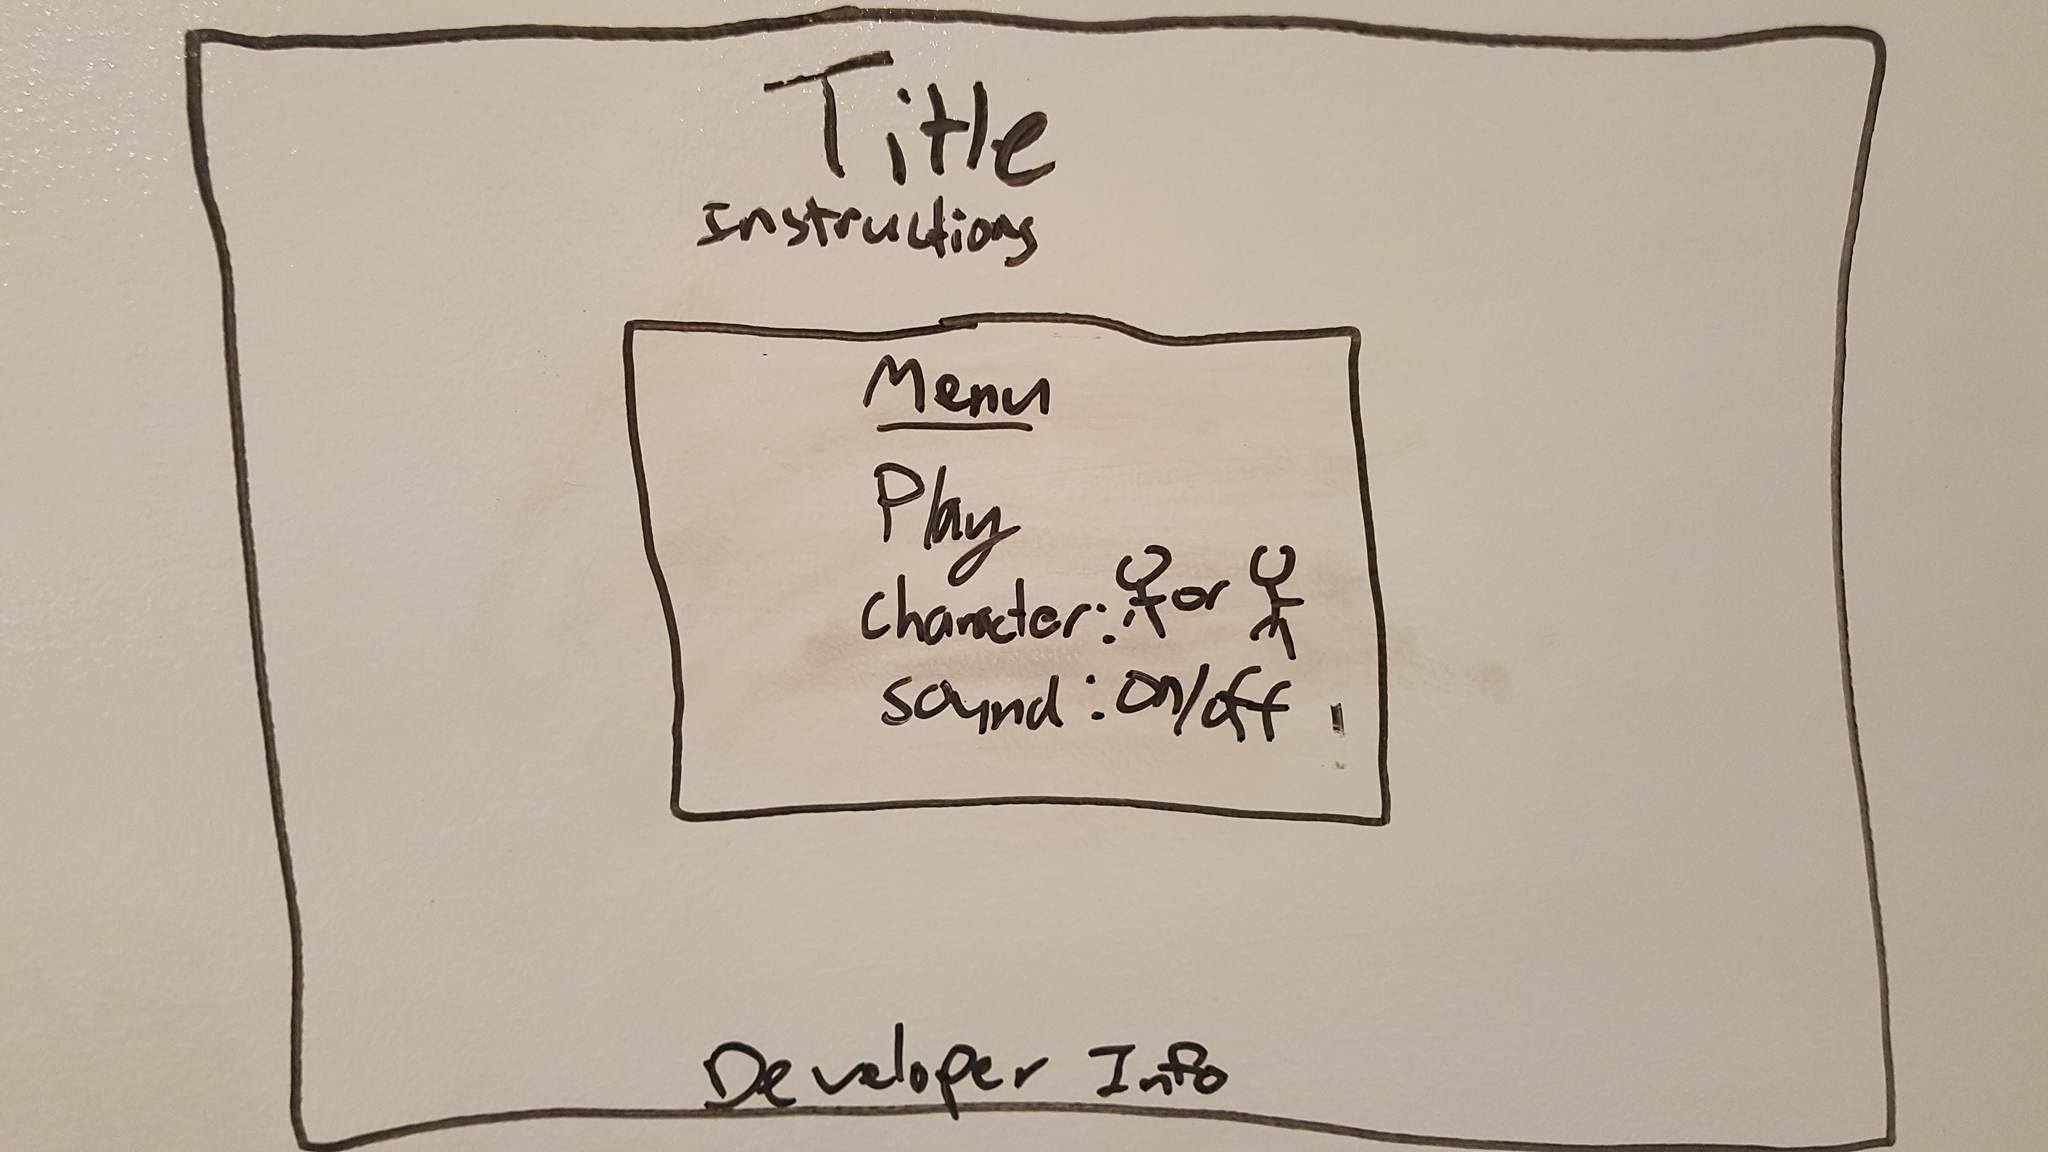 Title
Instructions
Menu
Play
Character: or
Sound: on/off
Developer Info